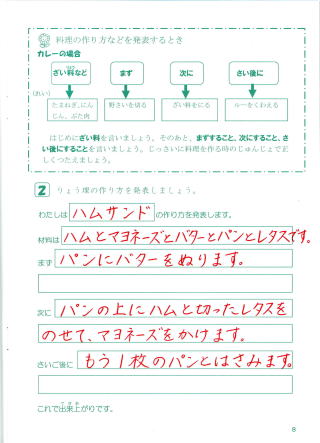 料理の作り方などを発表するとき
カレーの場合
ざい料など
まず
次に
さい後に
(れい)
たまねぎ、にんじん、ぶた肉
野さいを切る
ざい料をにる
ルーをくわえる
はじめにざい料を言いましょう。そのあと、まずすること、次にすること、さい後にすることを言いましょう。じっさいに料理を作る時のじゅんじょで正しくつたえましょう。
2 りょう理の作り方を発表しましょう。
わたしは ハムサンド の作り方を発表します。
材料は ハムとマヨネーズとバターとパンとレタスです。
まず パンにバターをぬります。
次に パンの上にハムと切ったレタスを
のせて、マヨネーズをかけます。
さいご後に もう1枚のパンとはさみます。
これで出来上がりです。
8